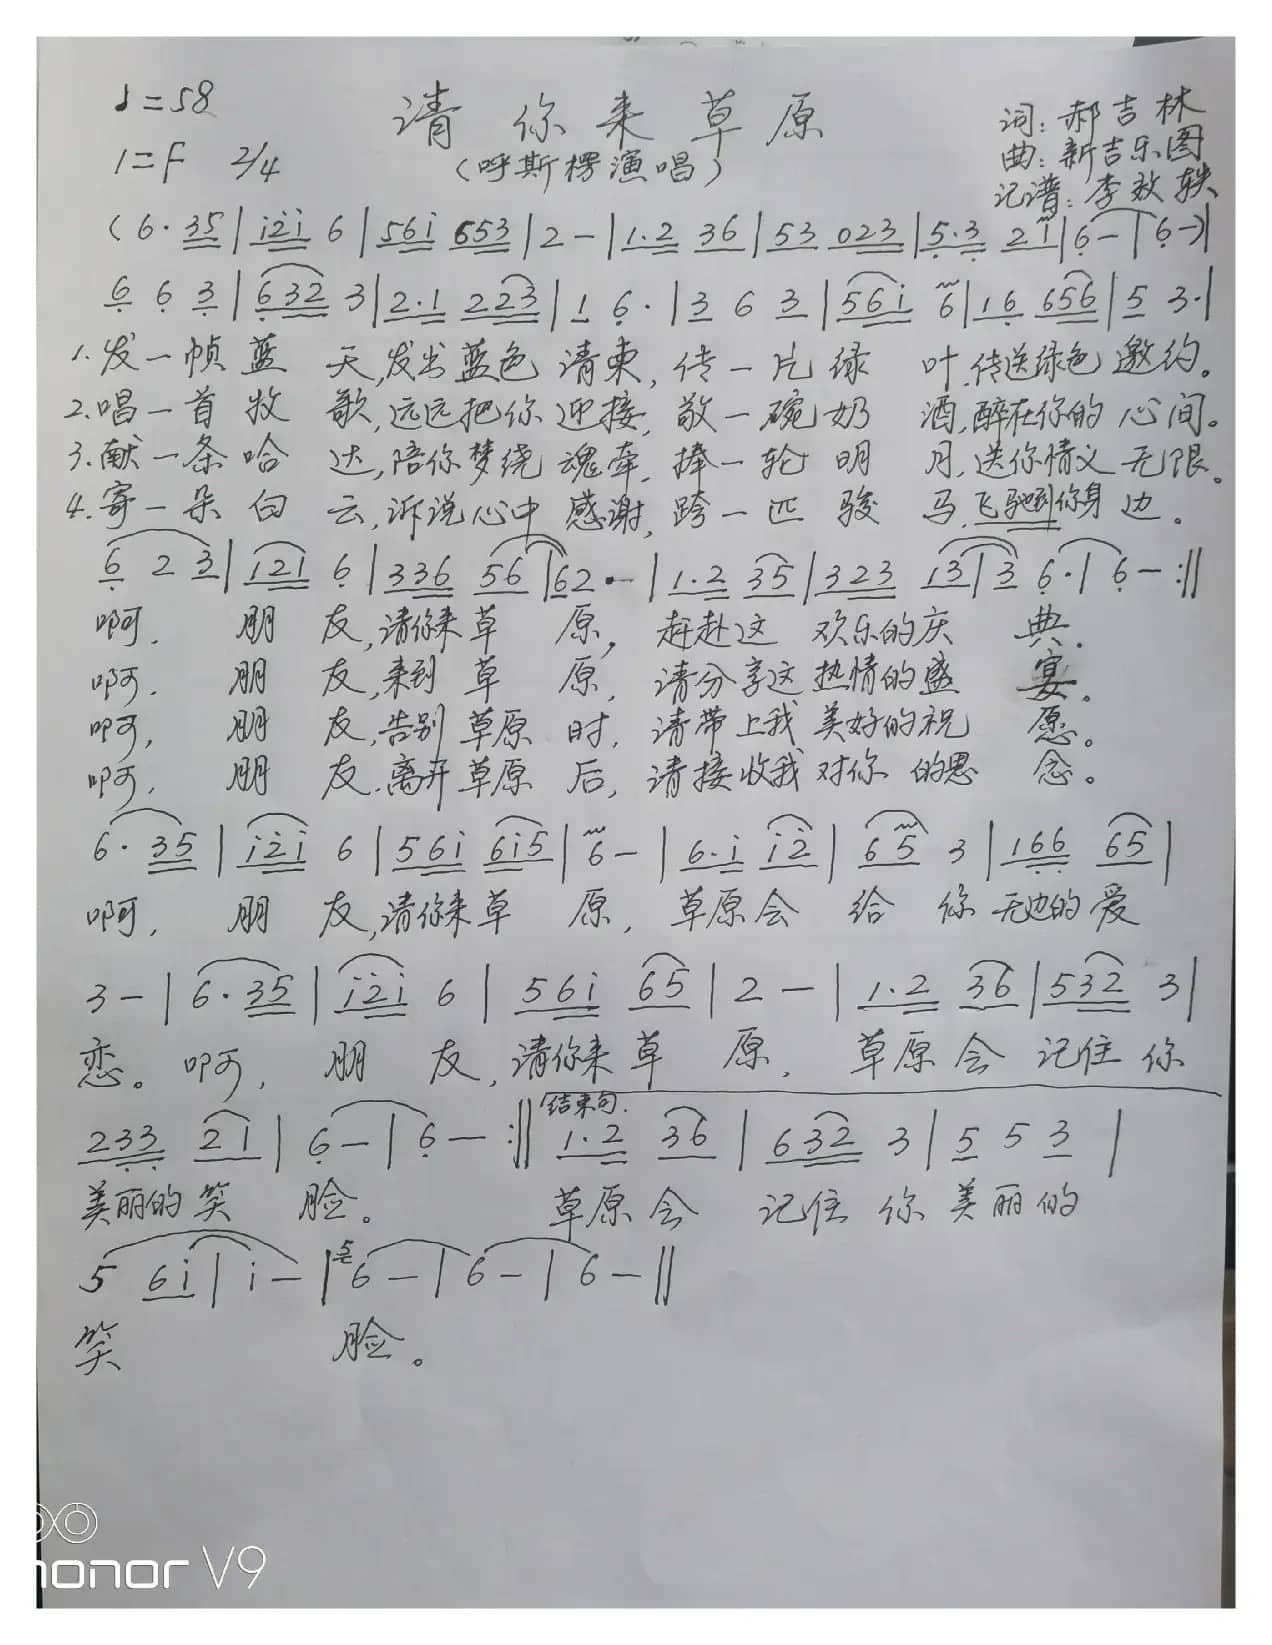 ♩=58
请你来草原
词：郝吉林
1=F 2/4
（呼斯楞演唱）
曲：新吉乐图
记谱：李效轶
(6· 35 | i̇2̇i̇ 6 | 56i̇ 653 | 2 — | 1·2 36 | 53 023 | 5·3 21 | 6 — | 6 —) |
6 6 3 | 632 3 | 2·1 223 | 1 6· | 3 6 3 | 56i̇ 6 | 16 656 | 5 3· |
1.发一帧蓝 天,发出蓝色 请柬,传一片绿 叶,传送绿色 邀约。
2.唱一首牧 歌,远远把你 迎接,敬一碗奶 酒,醉在你的 心间。
3.献一条哈 达,陪你梦绕 魂牵,捧一轮明 月,送你情义 无限。
4.寄一朵白 云,诉说心中 感谢,跨一匹骏 马,飞驰到你身 边。
6 2 3 | 121 6 | 336 56 | 62· — | 1·2 35 | 323 13 | 3 6· | 6 — :||
啊, 朋 友,请你来草 原, 赶赴这 欢乐的庆 典.
啊, 朋 友,来到 草 原, 请分享这 热情的盛 宴。
啊, 朋 友,告别 草原 时, 请带上我 美好的祝 愿。
啊, 朋 友.离开草原 后, 请接收我 对你 的思 念。
6· 35 | i̇2̇i̇ 6 | 56i̇ 6i̇5 | 6 — | 6·i̇ i̇2̇ | 65 3 | 166 65 |
啊, 朋 友,请你来草 原, 草原会 给 你 无边的 爱
3 — | 6· 35 | i̇2̇i̇ 6 | 56i̇ 65 | 2 — | 1·2 36 | 532 3 |
恋。 啊, 朋 友,请你来草 原, 草原会 记住 你
结束句.
233 21 | 6 — | 6 — :|| 1·2 36 | 632 3 | 5 5 3 |
美丽的笑 脸。 草原会 记住 你 美丽的
5 6i̇ | i̇ — | 5 6 — | 6 — | 6 — ||
笑 脸。
honor V9